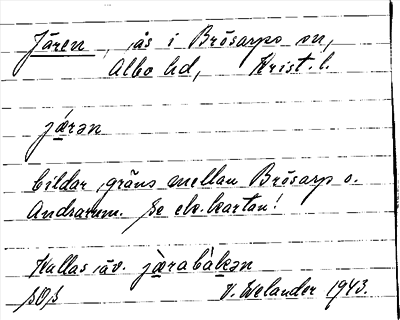 Jären, ås i Brösarps sn,
Albo hd, Krist. l.
jǽrən
bildar gräns mellan Brösarp o.
Andrarum. Se ek. kartan!
Kallas äv. jæ̀rabàkən
V. Welander 1943.